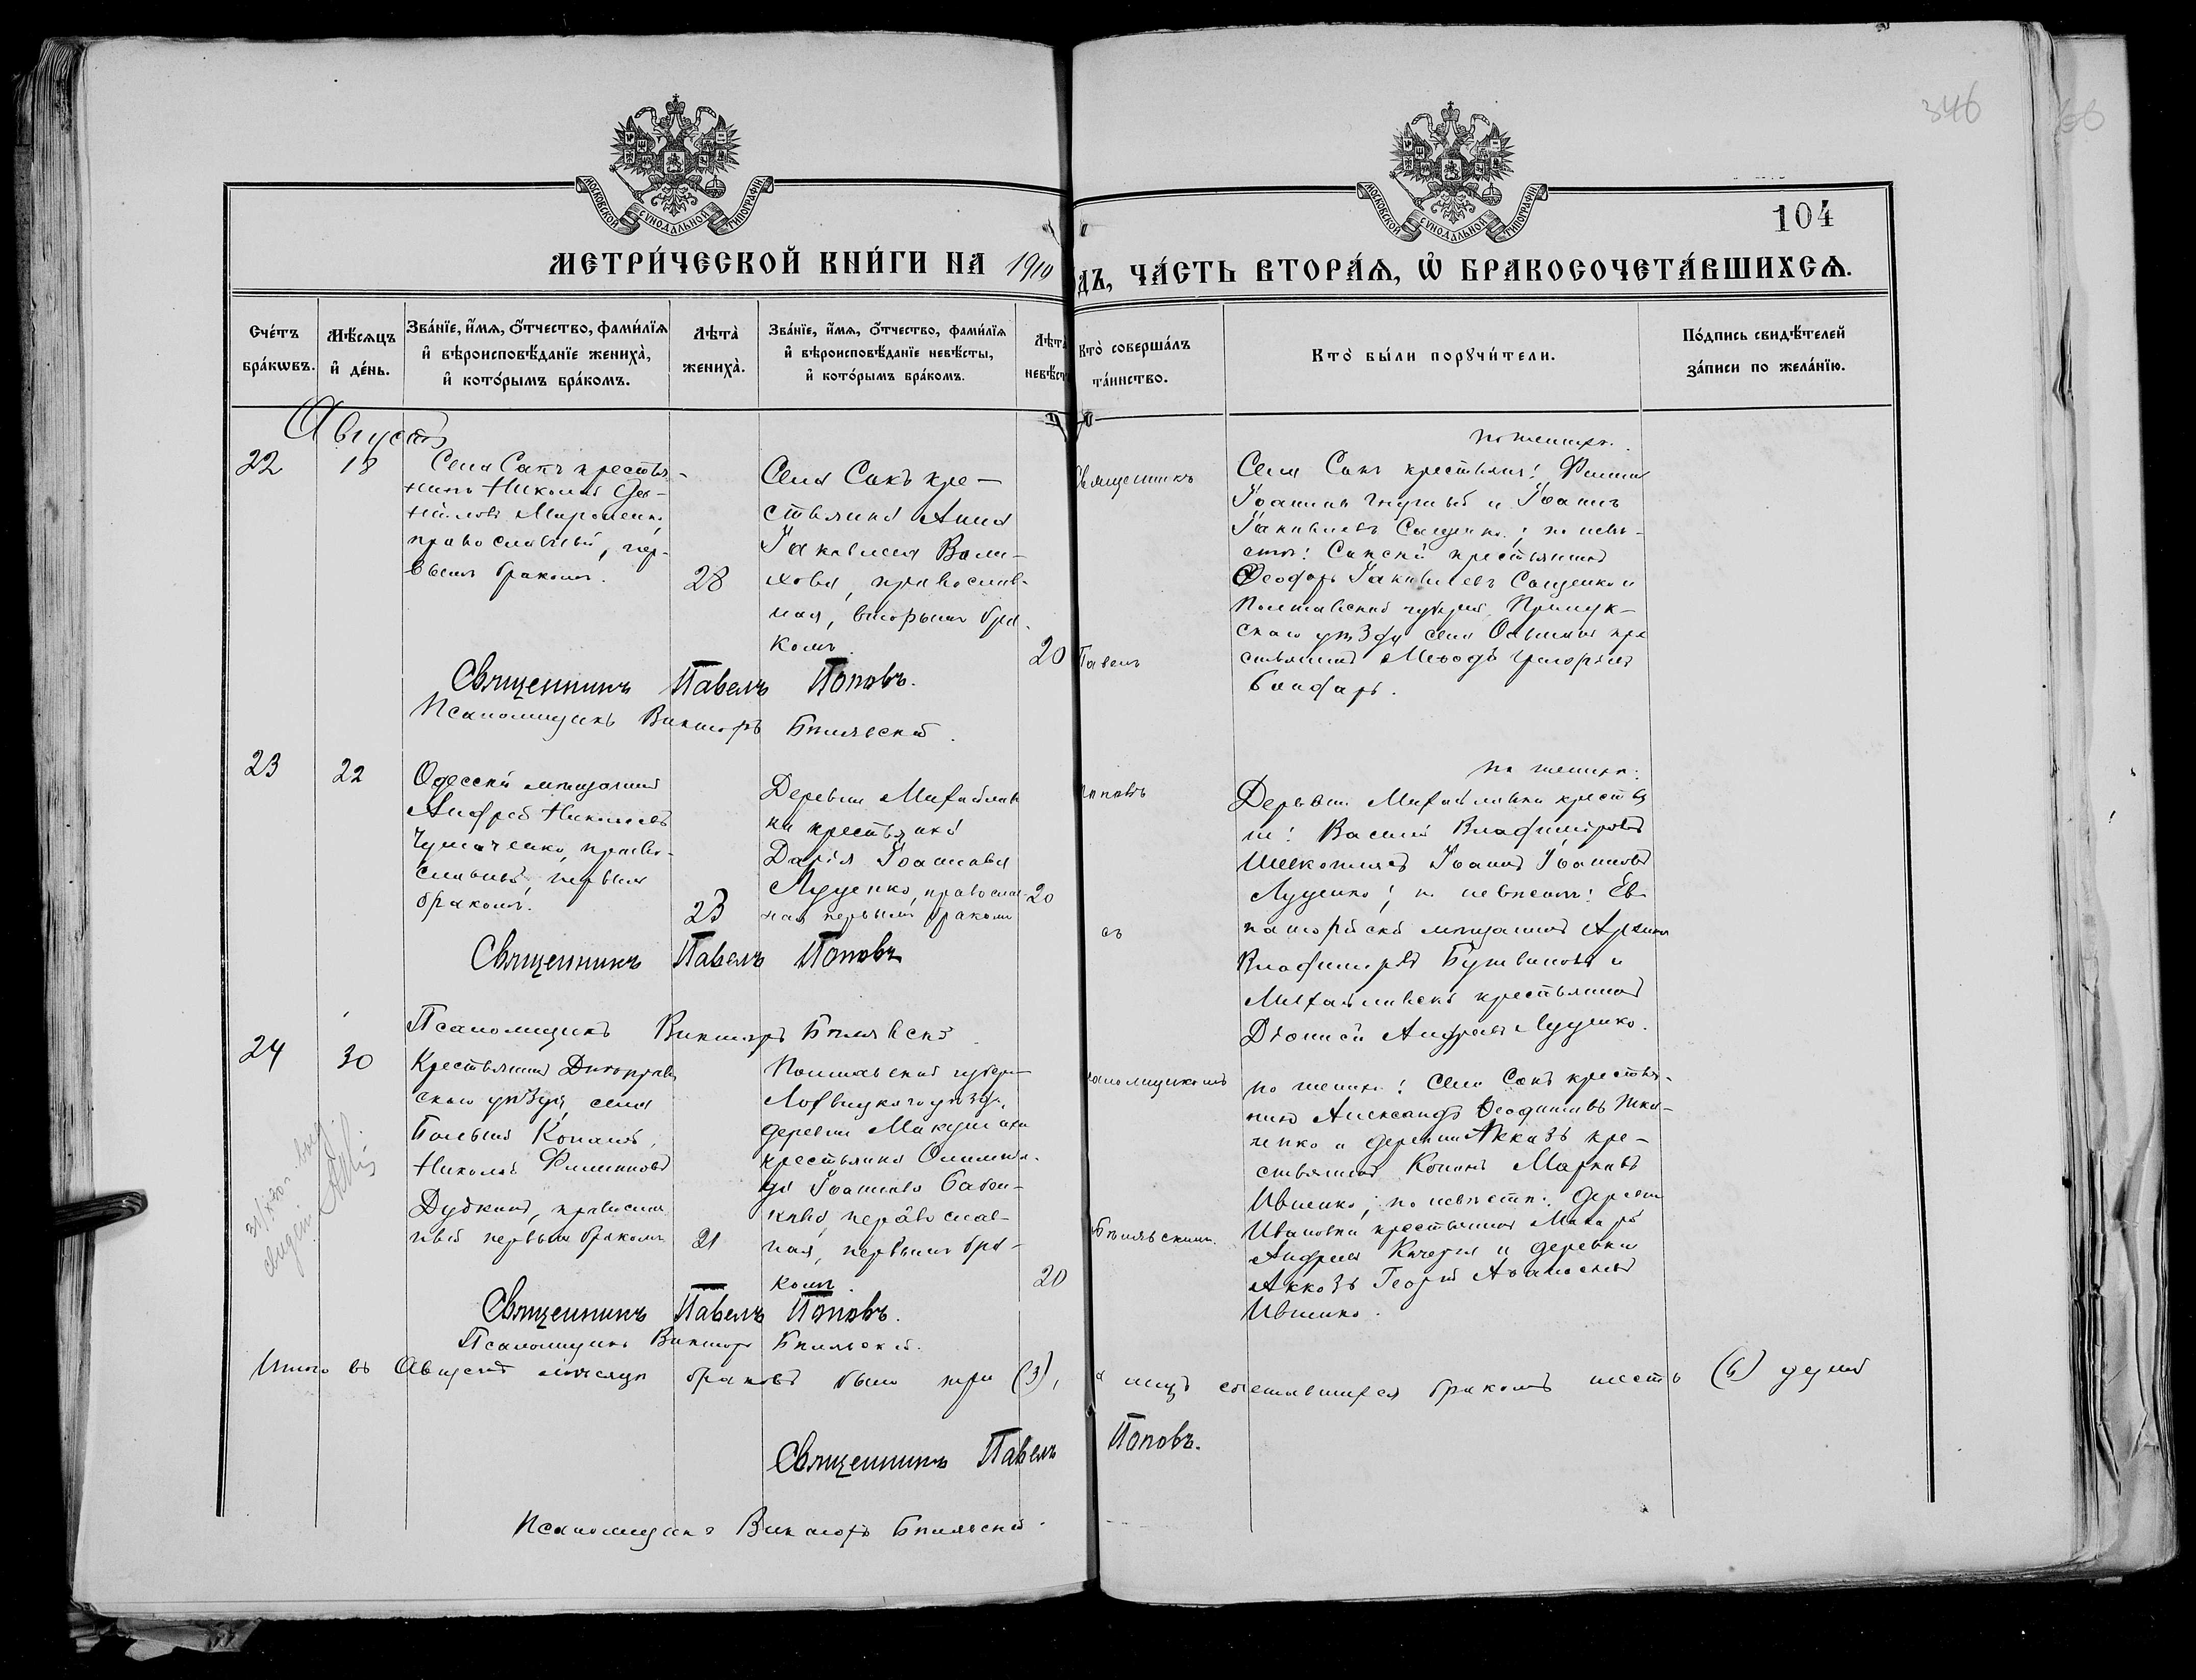 346
104
МОСКОВСКОЙ СУНОДАЛЬНОЙ ТИПОГРАФІИ
МОСКОВСКОЙ СУНОДАЛЬНОЙ ТИПОГРАФІИ
МЕТРИ́ЧЕСКОЙ КНИ́ГИ НА 1910
дъ, ЧА́СТЬ ВТОРА́Ѧ, Ѽ БРАКОСОЧЕТА́ВШИХСѦ.
Сче́тъ бра́кѡвъ.
Мѣ́сѧцъ и҆ де́нь.
Зва́нїе, и҆́мѧ, о҆́тчество, фами́лїѧ
и҆ вѣроисповѣ́данїе жениха̀,
и҆ кото́рымъ бра́комъ.
Лѣта̀ жениха̀.
Зва́нїе, и҆́мѧ, о҆́тчество, фами́лїѧ
и҆ вѣроисповѣ́данїе невѣ́сты,
и҆ кото́рымъ бра́комъ.
Лѣта̀ невѣ́ст
Кто̀ соверша́лъ та́инство.
Кто̀ бы́ли порꙋчи́тели.
По́дпись свидѣ́телей
за́писи по жела́нїю.
Августъ
22
18
Села Сакъ крестья-
нинъ Николай
православный, пер-
вымъ бракомъ.
28
Села Сакъ кре-
стьянка Анна
Іаковлева Воли-
хова, православ-
ная, вторымъ бра-
комъ.
20
Священникъ
Павелъ
по женихѣ:
Села Сакъ крестьяне: Филиппъ
Іоанновъ и Іоаннъ
Іаковлевъ Сащенко; по невѣ-
стѣ: Сакскій крестьянинъ
Ѳеодоръ Іаковлевъ Сащенко и
Полтавской губерніи, Прилук-
скаго уѣзда села кре
стьянинъ Меѳодій Григорьевъ
Бондарь.
Священникъ Павелъ Поповъ.
Псаломщикъ Викторъ Бѣлявскій.
23
22
Одесскій мѣщанинъ
Андрей Николаевъ
Чумаченко, право-
славный, первымъ
бракомъ.
23
Деревни Михайлов
ки крестьянка
Дарія Іоаннова
Луценко, православ-
ная первымъ бракомъ
20
Поповъ
съ
по женихѣ:
Деревни Михайловки крестья
не: Василій Владиміровъ
Іоаннъ Іоанновъ
Луценко; по невѣстѣ: Ев-
паторійскій мѣщанинъ
Владиміровъ и
Михайловскій крестьянинъ
Діонисій Андреевъ Луценко.
Священникъ Павелъ Поповъ
Псаломщикъ Викторъ Бѣлявскій
24
30
Крестьянинъ Днѣпров
скаго уѣзда, села
Большіе Копани,
Николай Филипповъ
Дудкинъ, православ
ный первымъ бракомъ
21
Полтавской губерніи
Лохвицкаго уѣзда,
деревни Макушихи
крестьянка Олимпіа-
да Іоаннова
православ-
ная, первымъ бра-
комъ.
20
псаломщикомъ
Бѣлявскимъ.
по женихѣ: Села Сакъ крестья-
нинъ Александръ Тка-
ченко и деревни Аккозъ кре-
стьянинъ Кононъ Марковъ
Ивченко; по невѣстѣ: деревни
Ивановки крестьянинъ Макарій
Андреевъ и деревни
Аккозъ Георгій Аѳанасьевъ
Ивченко.
Священникъ Павелъ Поповъ.
Псаломщикъ Викторъ Бѣлявскій.
Итого въ Августѣ мѣсяцѣ браковъ было три (3), а лицъ сочетавшихся бракомъ шесть (6) душъ
Священникъ Павелъ Поповъ.
Псаломщикъ Викторъ Бѣлявскій.